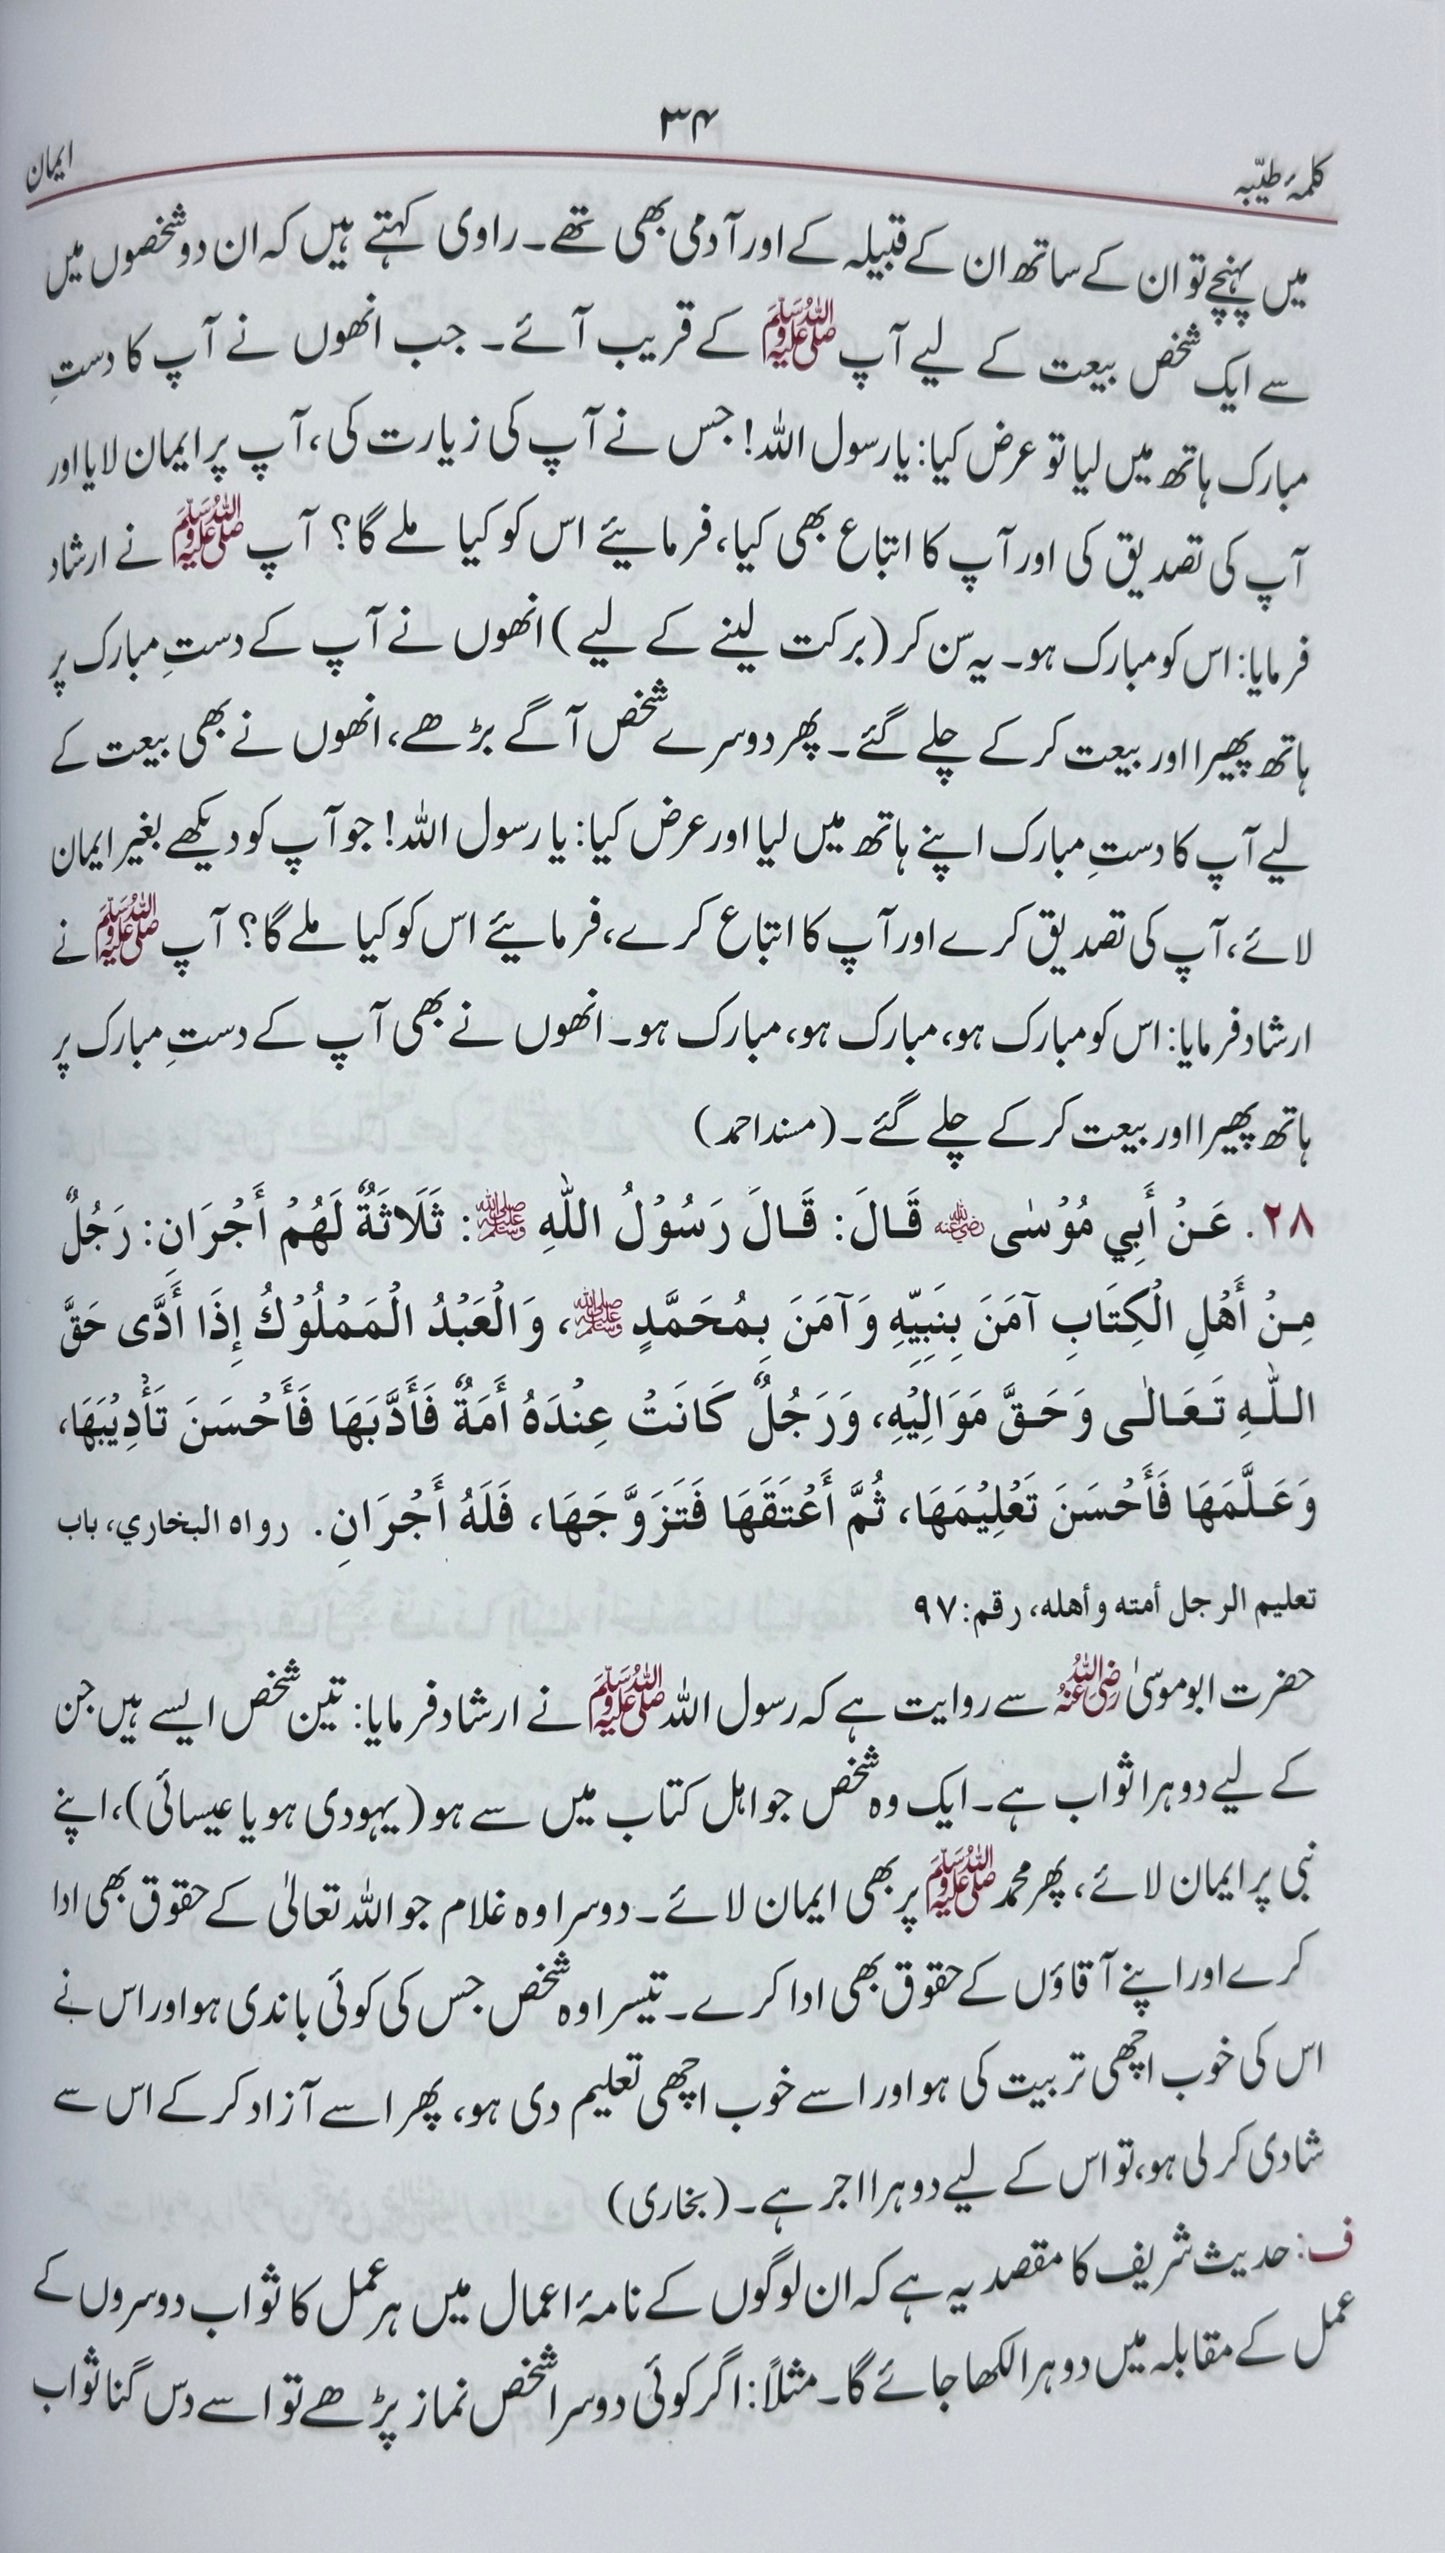 کلمۂ طیّبہ ۳۴ ایمان
میں پہنچے تو ان کے ساتھ ان کے قبیلہ کے اور آدمی بھی تھے۔ راوی کہتے ہیں کہ ان دو شخصوں میں
سے ایک شخص بیعت کے لیے آپ ﷺ کے قریب آئے۔ جب انھوں نے آپ کا دستِ
مبارک ہاتھ میں لیا تو عرض کیا: یا رسول اللہ! جس نے آپ کی زیارت کی، آپ پر ایمان لایا اور
آپ کی تصدیق کی اور آپ کا اتباع بھی کیا، فرمایئے اس کو کیا ملے گا؟ آپ ﷺ نے ارشاد
فرمایا: اس کو مبارک ہو۔ یہ سن کر (برکت لینے کے لیے) انھوں نے آپ کے دستِ مبارک پر
ہاتھ پھیرا اور بیعت کر کے چلے گئے۔ پھر دوسرے شخص آگے بڑھے، انھوں نے بھی بیعت کے
لیے آپ کا دستِ مبارک اپنے ہاتھ میں لیا اور عرض کیا: یا رسول اللہ! جو آپ کو دیکھے بغیر ایمان
لائے، آپ کی تصدیق کرے اور آپ کا اتباع کرے، فرمایئے اس کو کیا ملے گا؟ آپ ﷺ نے
ارشاد فرمایا: اس کو مبارک ہو، مبارک ہو، مبارک ہو۔ انھوں نے بھی آپ کے دستِ مبارک پر
ہاتھ پھیرا اور بیعت کر کے چلے گئے۔ (مسند احمد)
۲۸. عَنْ أَبِي مُوْسٰى رضی اللہ عنہ قَالَ: قَالَ رَسُوْلُ اللّٰهِ ﷺ: ثَلَاثَةٌ لَهُمْ أَجْرَانِ: رَجُلٌ
مِنْ أَهْلِ الْكِتَابِ آمَنَ بِنَبِيِّهِ وَآمَنَ بِمُحَمَّدٍ ﷺ، وَالْعَبْدُ الْمَمْلُوْكُ إِذَا أَدَّى حَقَّ
اللّٰهِ تَعَالٰى وَحَقَّ مَوَالِيْهِ، وَرَجُلٌ كَانَتْ عِنْدَهُ أَمَةٌ فَأَدَّبَهَا فَأَحْسَنَ تَأْدِيْبَهَا،
وَعَلَّمَهَا فَأَحْسَنَ تَعْلِيْمَهَا، ثُمَّ أَعْتَقَهَا فَتَزَوَّجَهَا، فَلَهُ أَجْرَانِ. رواه البخاري، باب
تعليم الرجل أمته وأهله، رقم: ٩٧
حضرت ابوموسیٰ رضی اللہ عنہ سے روایت ہے کہ رسول اللہ ﷺ نے ارشاد فرمایا: تین شخص ایسے ہیں جن
کے لیے دوہرا ثواب ہے۔ ایک وہ شخص جو اہل کتاب میں سے ہو (یہودی ہو یا عیسائی)، اپنے
نبی پر ایمان لائے، پھر محمد ﷺ پر بھی ایمان لائے۔ دوسرا وہ غلام جو اللہ تعالیٰ کے حقوق بھی ادا
کرے اور اپنے آقاؤں کے حقوق بھی ادا کرے۔ تیسرا وہ شخص جس کی کوئی باندی ہو اور اس نے
اس کی خوب اچھی تربیت کی ہو اور اسے خوب اچھی تعلیم دی ہو، پھر اسے آزاد کر کے اس سے
شادی کر لی ہو، تو اس کے لیے دوہرا اجر ہے۔ (بخاری)
ف: حدیث شریف کا مقصد یہ ہے کہ ان لوگوں کے نامۂ اعمال میں ہر عمل کا ثواب دوسروں کے
عمل کے مقابلہ میں دوہرا لکھا جائے گا۔ مثلاً: اگر کوئی دوسرا شخص نماز پڑھے تو اسے دس گنا ثواب